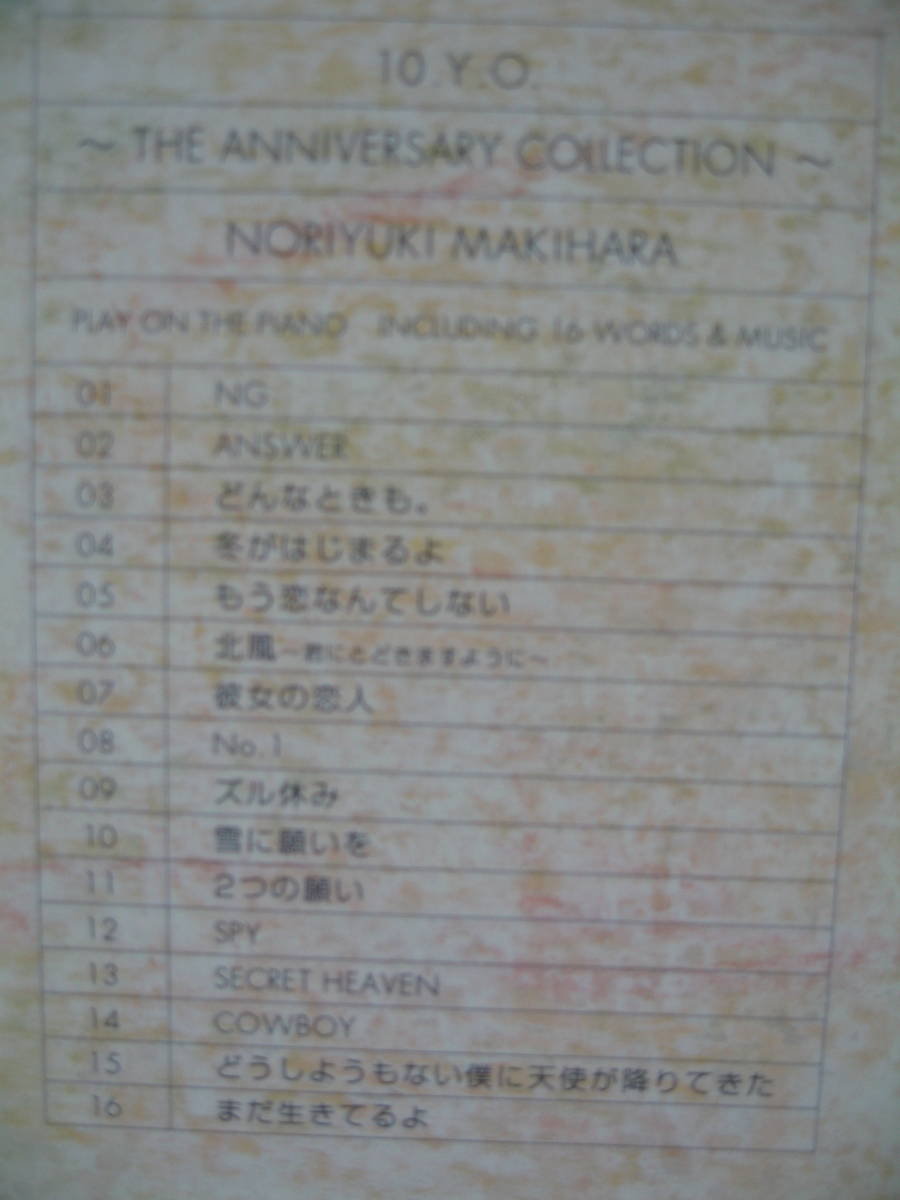 10.Y.O.
~ THE ANNIVERSARY COLLECTION ~
NORIYUKI MAKIHARA
PLAY ON THE PIANO INCLUDING 16 WORDS & MUSIC
01 NG
02 ANSWER
03 どんなときも。
04 冬がはじまるよ
05 もう恋なんてしない
06 北風〜君にとどきますように〜
07 彼女の恋人
08 No.1
09 ズル休み
10 雪に願いを
11 2つの願い
12 SPY
13 SECRET HEAVEN
14 COWBOY
15 どうしようもない僕に天使が降りてきた
16 まだ生きてるよ